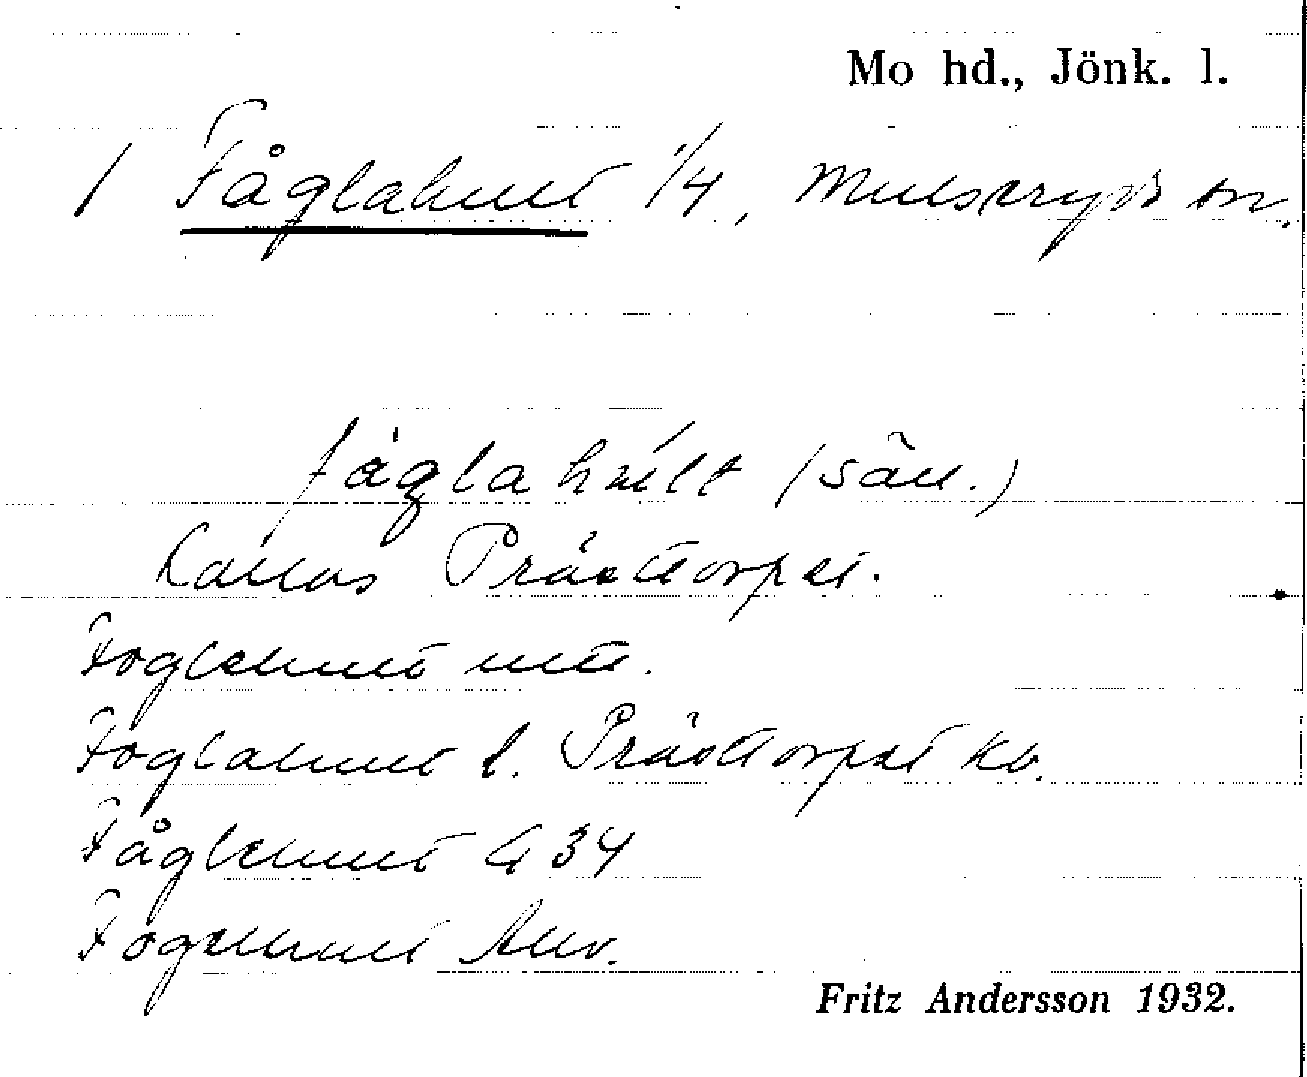 Mo hd., Jönk. l.
/ Fåglahult 1/4, Mulseryds sn.
fåglahult (säll.)
Kallas Prästtorpet.
Foglehult utt.
Foglahult l. Prästtorpet Kb.
Fåglehult G 34
Fogelhult
Fritz Andersson 1932.